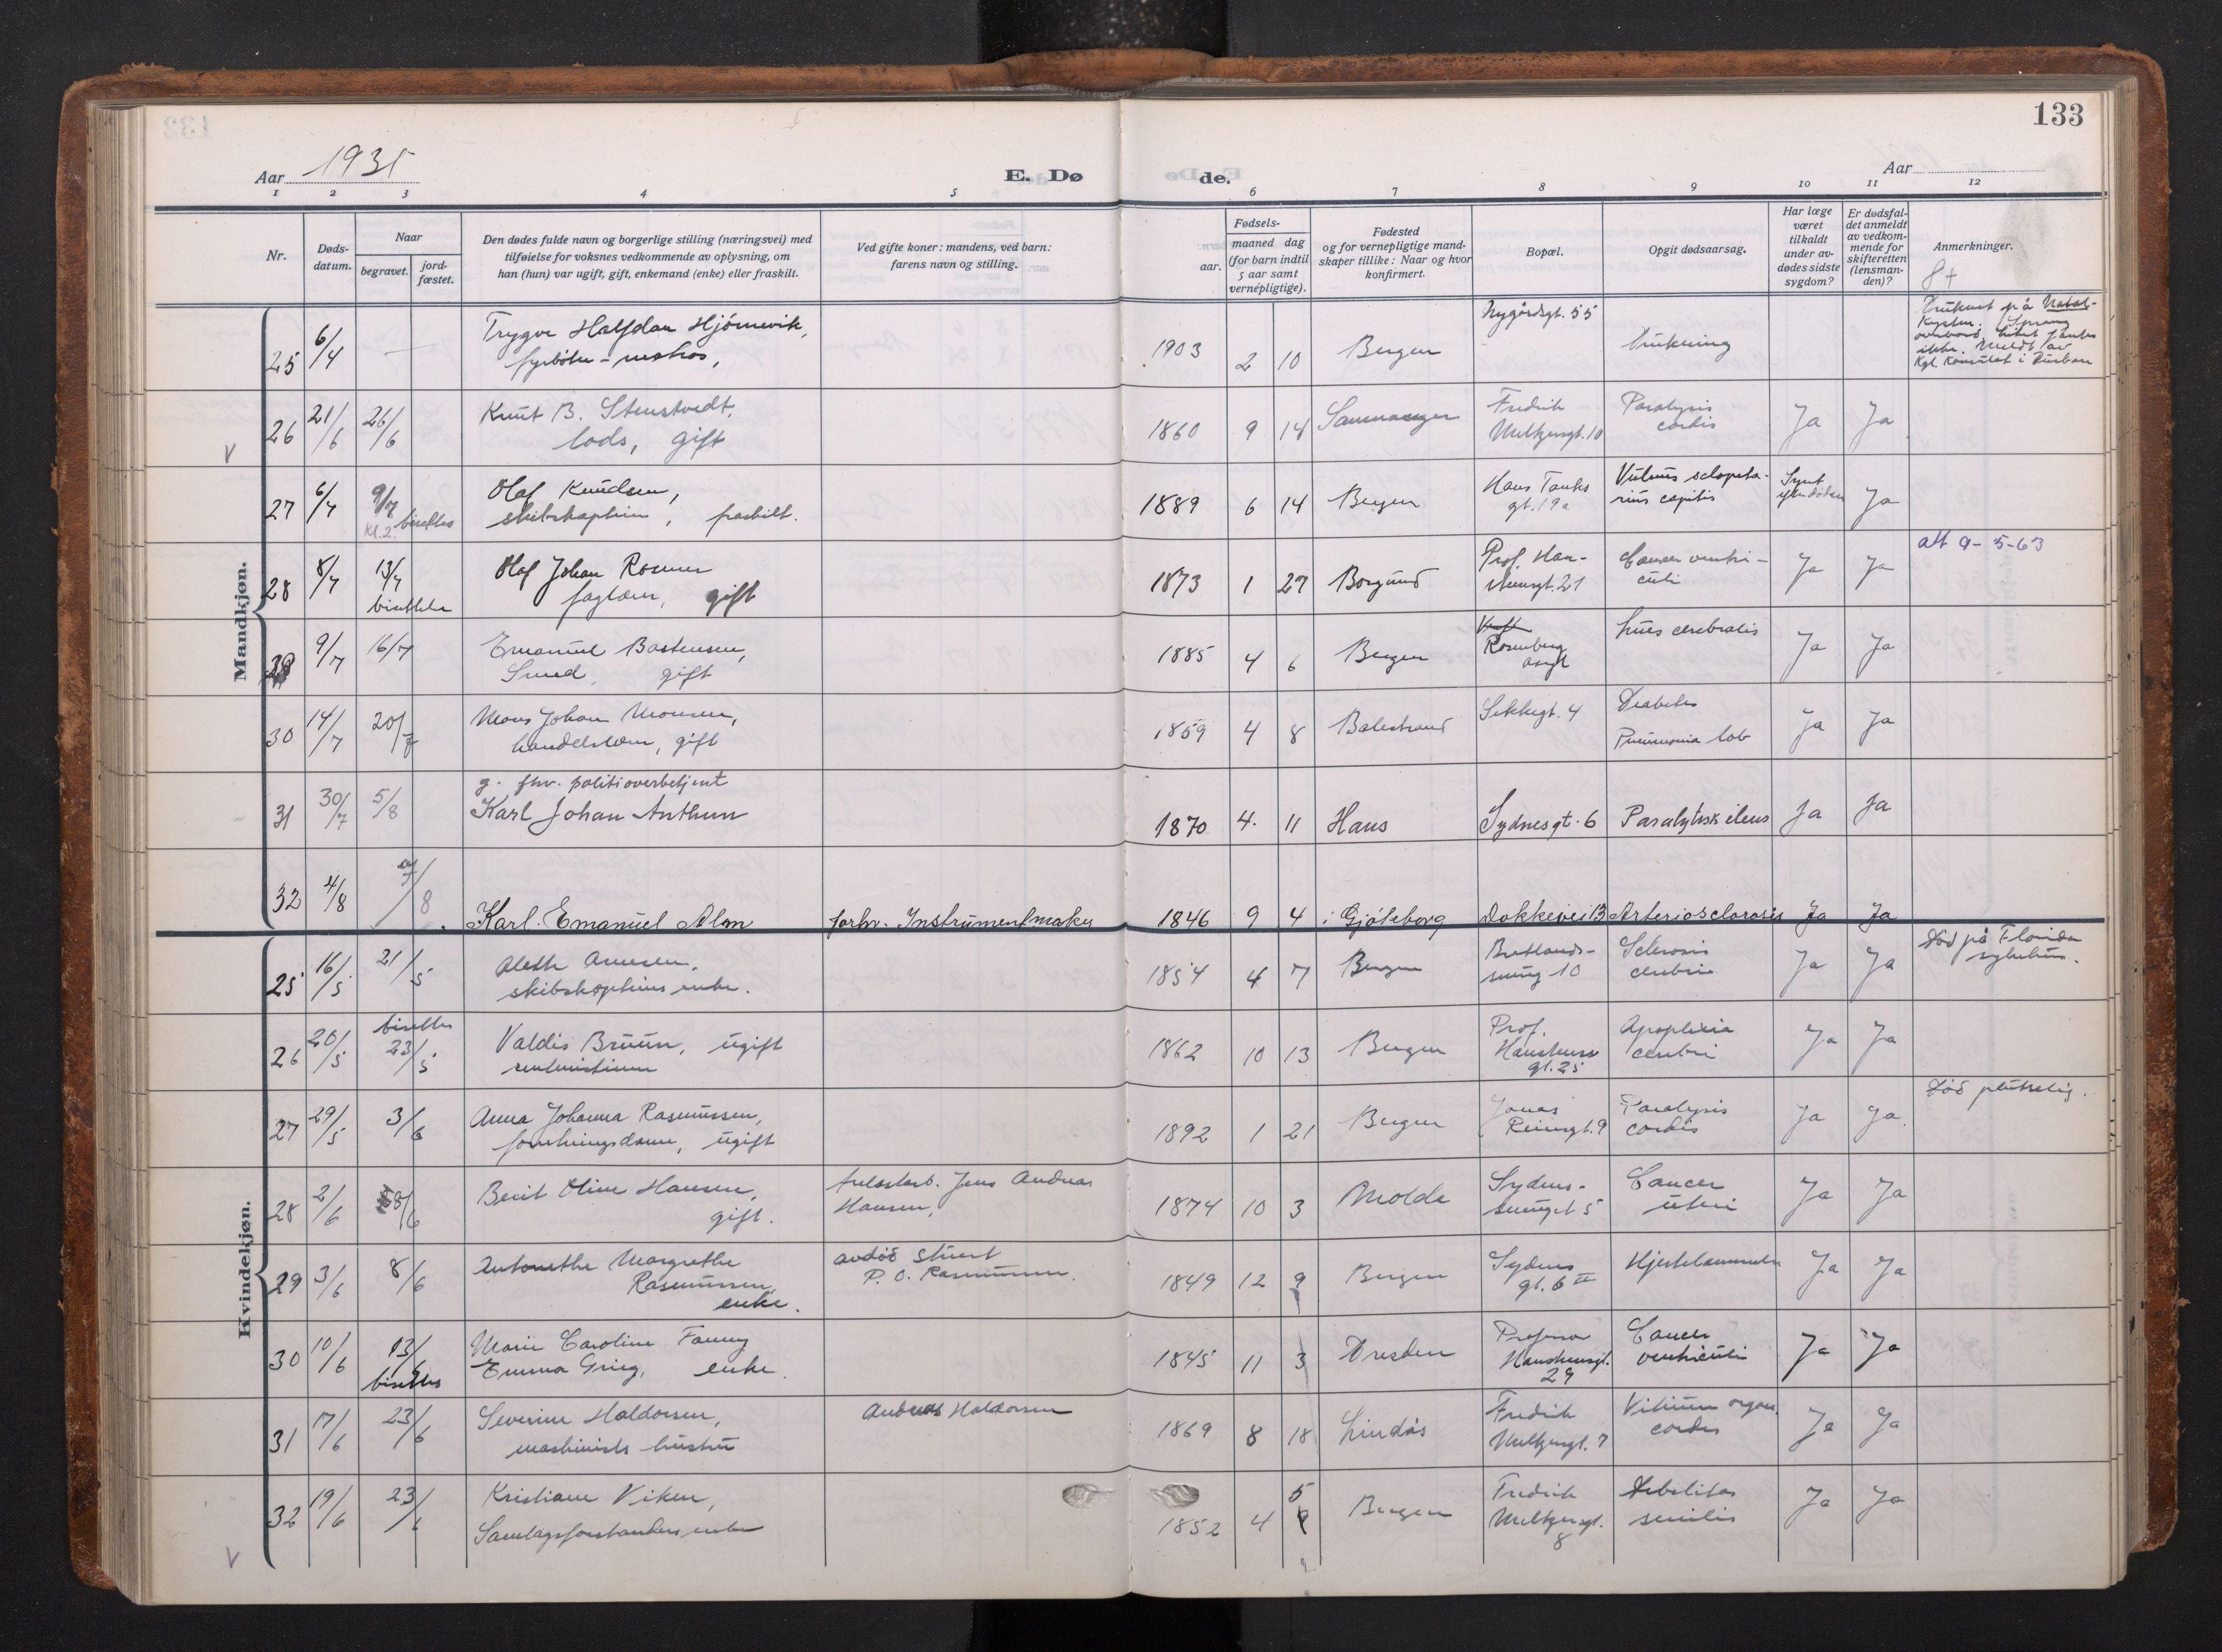 133
Aar 1935
E. Dø
de.
Aar
1 2 3 4 5 6 7 8 9 10 11 12
Nr.
Døds-
datum.
Naar
begravet.
jord-
fæstet.
Den dødes fulde navn og borgerlige stilling (næringsvei) med
tilføielse for voksnes vedkommende av oplysning, om
han (hun) var ugift, gift, enkemand (enke) eller fraskilt.
Ved gifte koner: mandens, ved barn:
farens navn og stilling.
aar.
Fødsels-
maaned dag
(for barn indtil
5 aar samt
vernepligtige).
Fødested
og for vernepligtige mand-
skaper tillike: Naar og hvor
konfirmert.
Bopæl.
Opgit dødsaarsag.
Har læge
været
tilkaldt
under av-
dødes sidste
sygdom?
Er dødsfal-
det anmeldt
av vedkom-
mende for
skifteretten
(lensman-
den)?
Anmerkninger.
8+
Mandkjøn.
25 6/4 — Trygve Halfdan Hjórnevik,
fyrböter - matros,
1903 2 10 Bergen
Nygårdsgt. 55
Drukning
Druknet på Natal-
Kysten. Sprang
overbord, fantes
ikke. Meldt av
Kgl. Konsulat i Durban
26 21/6 26/6 Knut B. Stenstvedt,
lods, gift
1860 9 14 Samnanger
Fredrik
Meltzersgt. 10
Paralysis
cordis
Ja Ja
27 6/7 9/7 Kl. 2. bisettes
Olaf Knudsen,
skibskaptein, fraskilt.
1889 6 14 Bergen
Hans Tanks
gt. 19a
Vulnus sclopeta-
rius capitis
Synt
efter döden
Ja
28 8/7 13/7 bisettelse
Olaf Johan Rosmer
faglærer, gift
1873 1 27 Borgund
Prof. Han-
steensgt. 21
Cancer ventri-
culi
Ja Ja
att 9-5-63
29 9/7 16/7 Emanuel Bastensen,
Smed, gift
1885 4 6 Bergen
Rosenberg
asgt
Lues cerebralis
Ja Ja
30 14/7 20/7 Mons Johan Monsen,
handelsmann, gift
1859 4 8 Balestrand
Sekkegt. 4
Diabetes
Pneumonia lob
Ja Ja
31 30/7 5/8
g. fhv. politioverbetjent
Karl Johan Anthun
1870 4. 11 Haus
Sydnesgt. 6
Paralytisk ileus
Ja Ja
32 4/8 7/8
Karl Emanuel Alm
forhv. Instrumentmaker
1846 9 4 i Gjöteborg
Dokkeivei 13
Arteriosclorosis
Ja Ja
Kvindekjøn.
25 16/5 21/5 Aleth Arnesen,
skibskapteins enke.
1854 4 7 Bergen
Bretlands-
smug 10
Sclerosis
cerebri
Ja Ja
Död på Florida
sykehus.
26 20/5 bisettes
23/5
Valdis Bruun, ugift
rentenistinne
1862 10 13 Bergen
Prof.
Hansteens
gt. 25
Apoplexia
cerebri
Ja Ja
27 29/5 3/6 Anna Johanna Rasmussen,
forretningsdame, ugift
1892 1 21 Bergen
Jonas
Reinsgt. 9
Paralysis
cordis
Ja Ja.
Död plutselig.
28 2/6 8/6 Berit Oline Hansen,
gift.
Jens Andreas
Hansen,
1874 10 3 Molde
Sydnes-
smuget 5
Cancer
uteri
Ja Ja
29 3/6 8/6 Antonethe Margrethe
Rasmussen,
enke.
avdöd Stuert
P. O. Rasmussen.
1849 12 9 Bergen
Sydnes
gt. 6 II
Hjertelammelse
Ja Ja
30 10/6 13/6
bisettes
Marie Caroline Fanny
Emma Grieg, enke.
1845 11 3 Dresden
Professor
Hansteensgt.
29
Cancer
ventriculi
Ja Ja
31 17/6 23/6 Severine Haldorsen,
maskinists hustru
Andreas Haldorsen
1869 8 18 Lindås
Fredrik
Meltzersgt. 7
Vitium organ.
cordis
Ja Ja
32 19/6 23/6 Kristiane Viken,
Samlagsforstanders enke
1852 4 5 Bergen
Fredrik
Meltzersgt.
8
Debilitas
senilis
Ja Ja